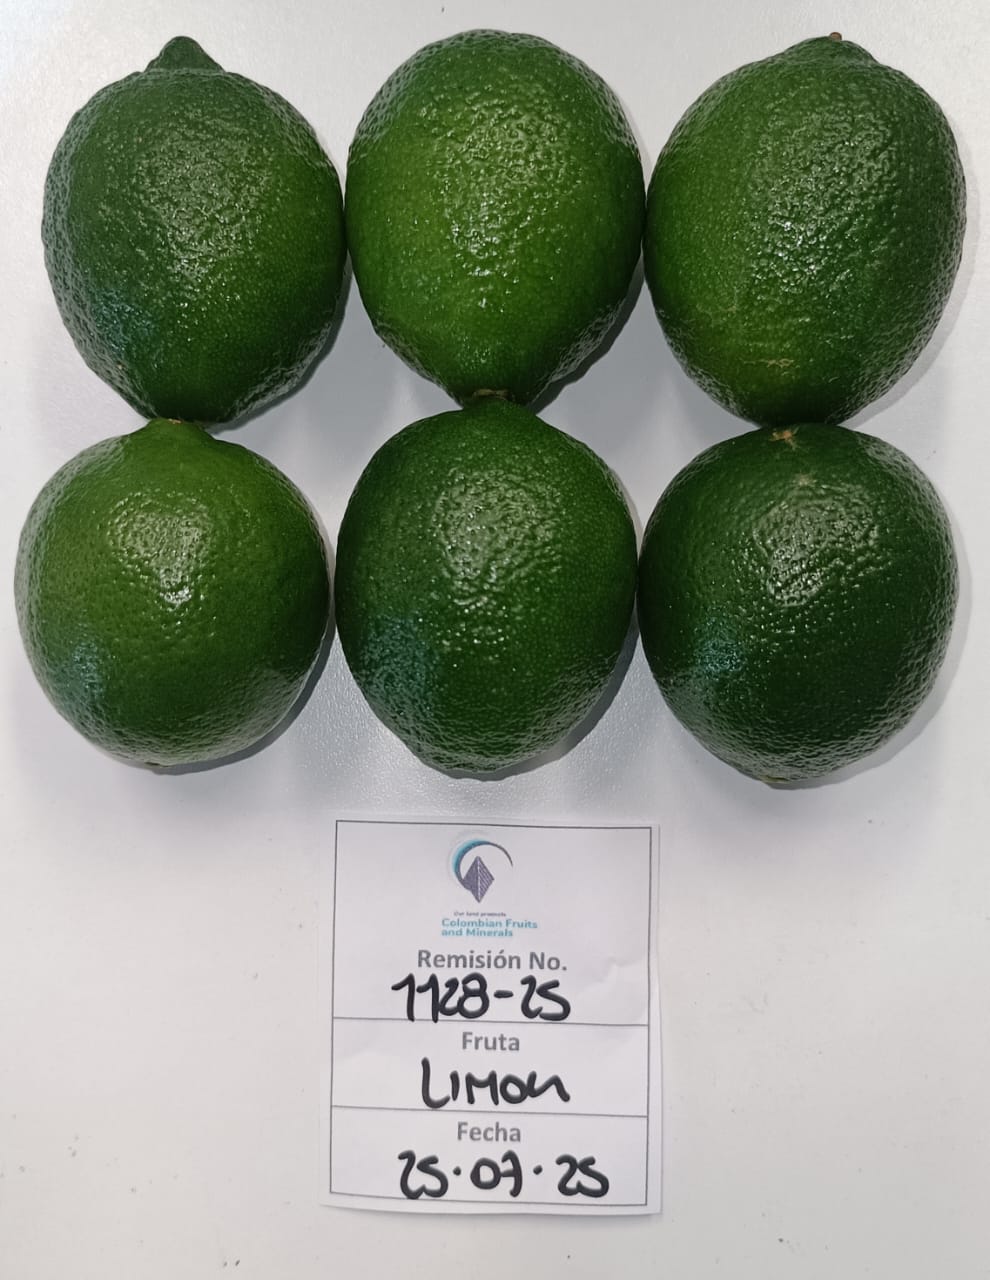 Our land products
Colombian Fruits
and Minerals
Remisión No.
1128-25
Fruta
LIMON
Fecha
25.07.25